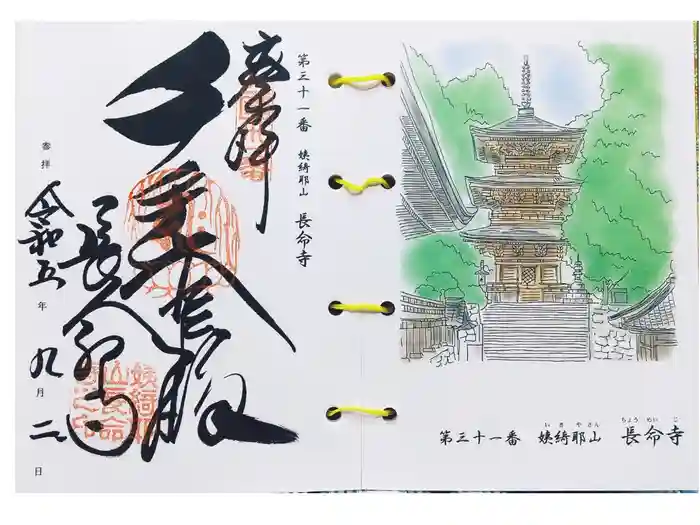 第三十一番 姨綺耶山 長命寺
奉拝
千手大悲殿
長命寺
参拝 令和五年九月二日
姨綺耶
山長命
寺之印
第三十一番 姨綺耶山 長命寺
いきやさん ちょうめいじ